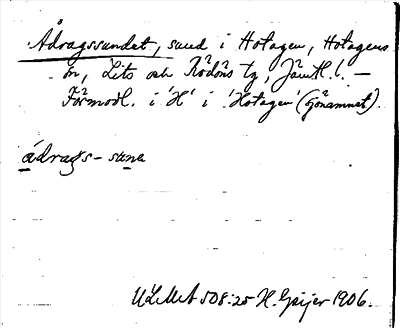 Ådragssundet, sund i Hotagen, Hotagens
sn, Lits och Rödöns tg, Jämtl. l. —
Förmodl. i 'H' i 'Hotagen' (sjönamnet).
ådrags-suṇe
ULMA 508:25 H. Geijer 1906.